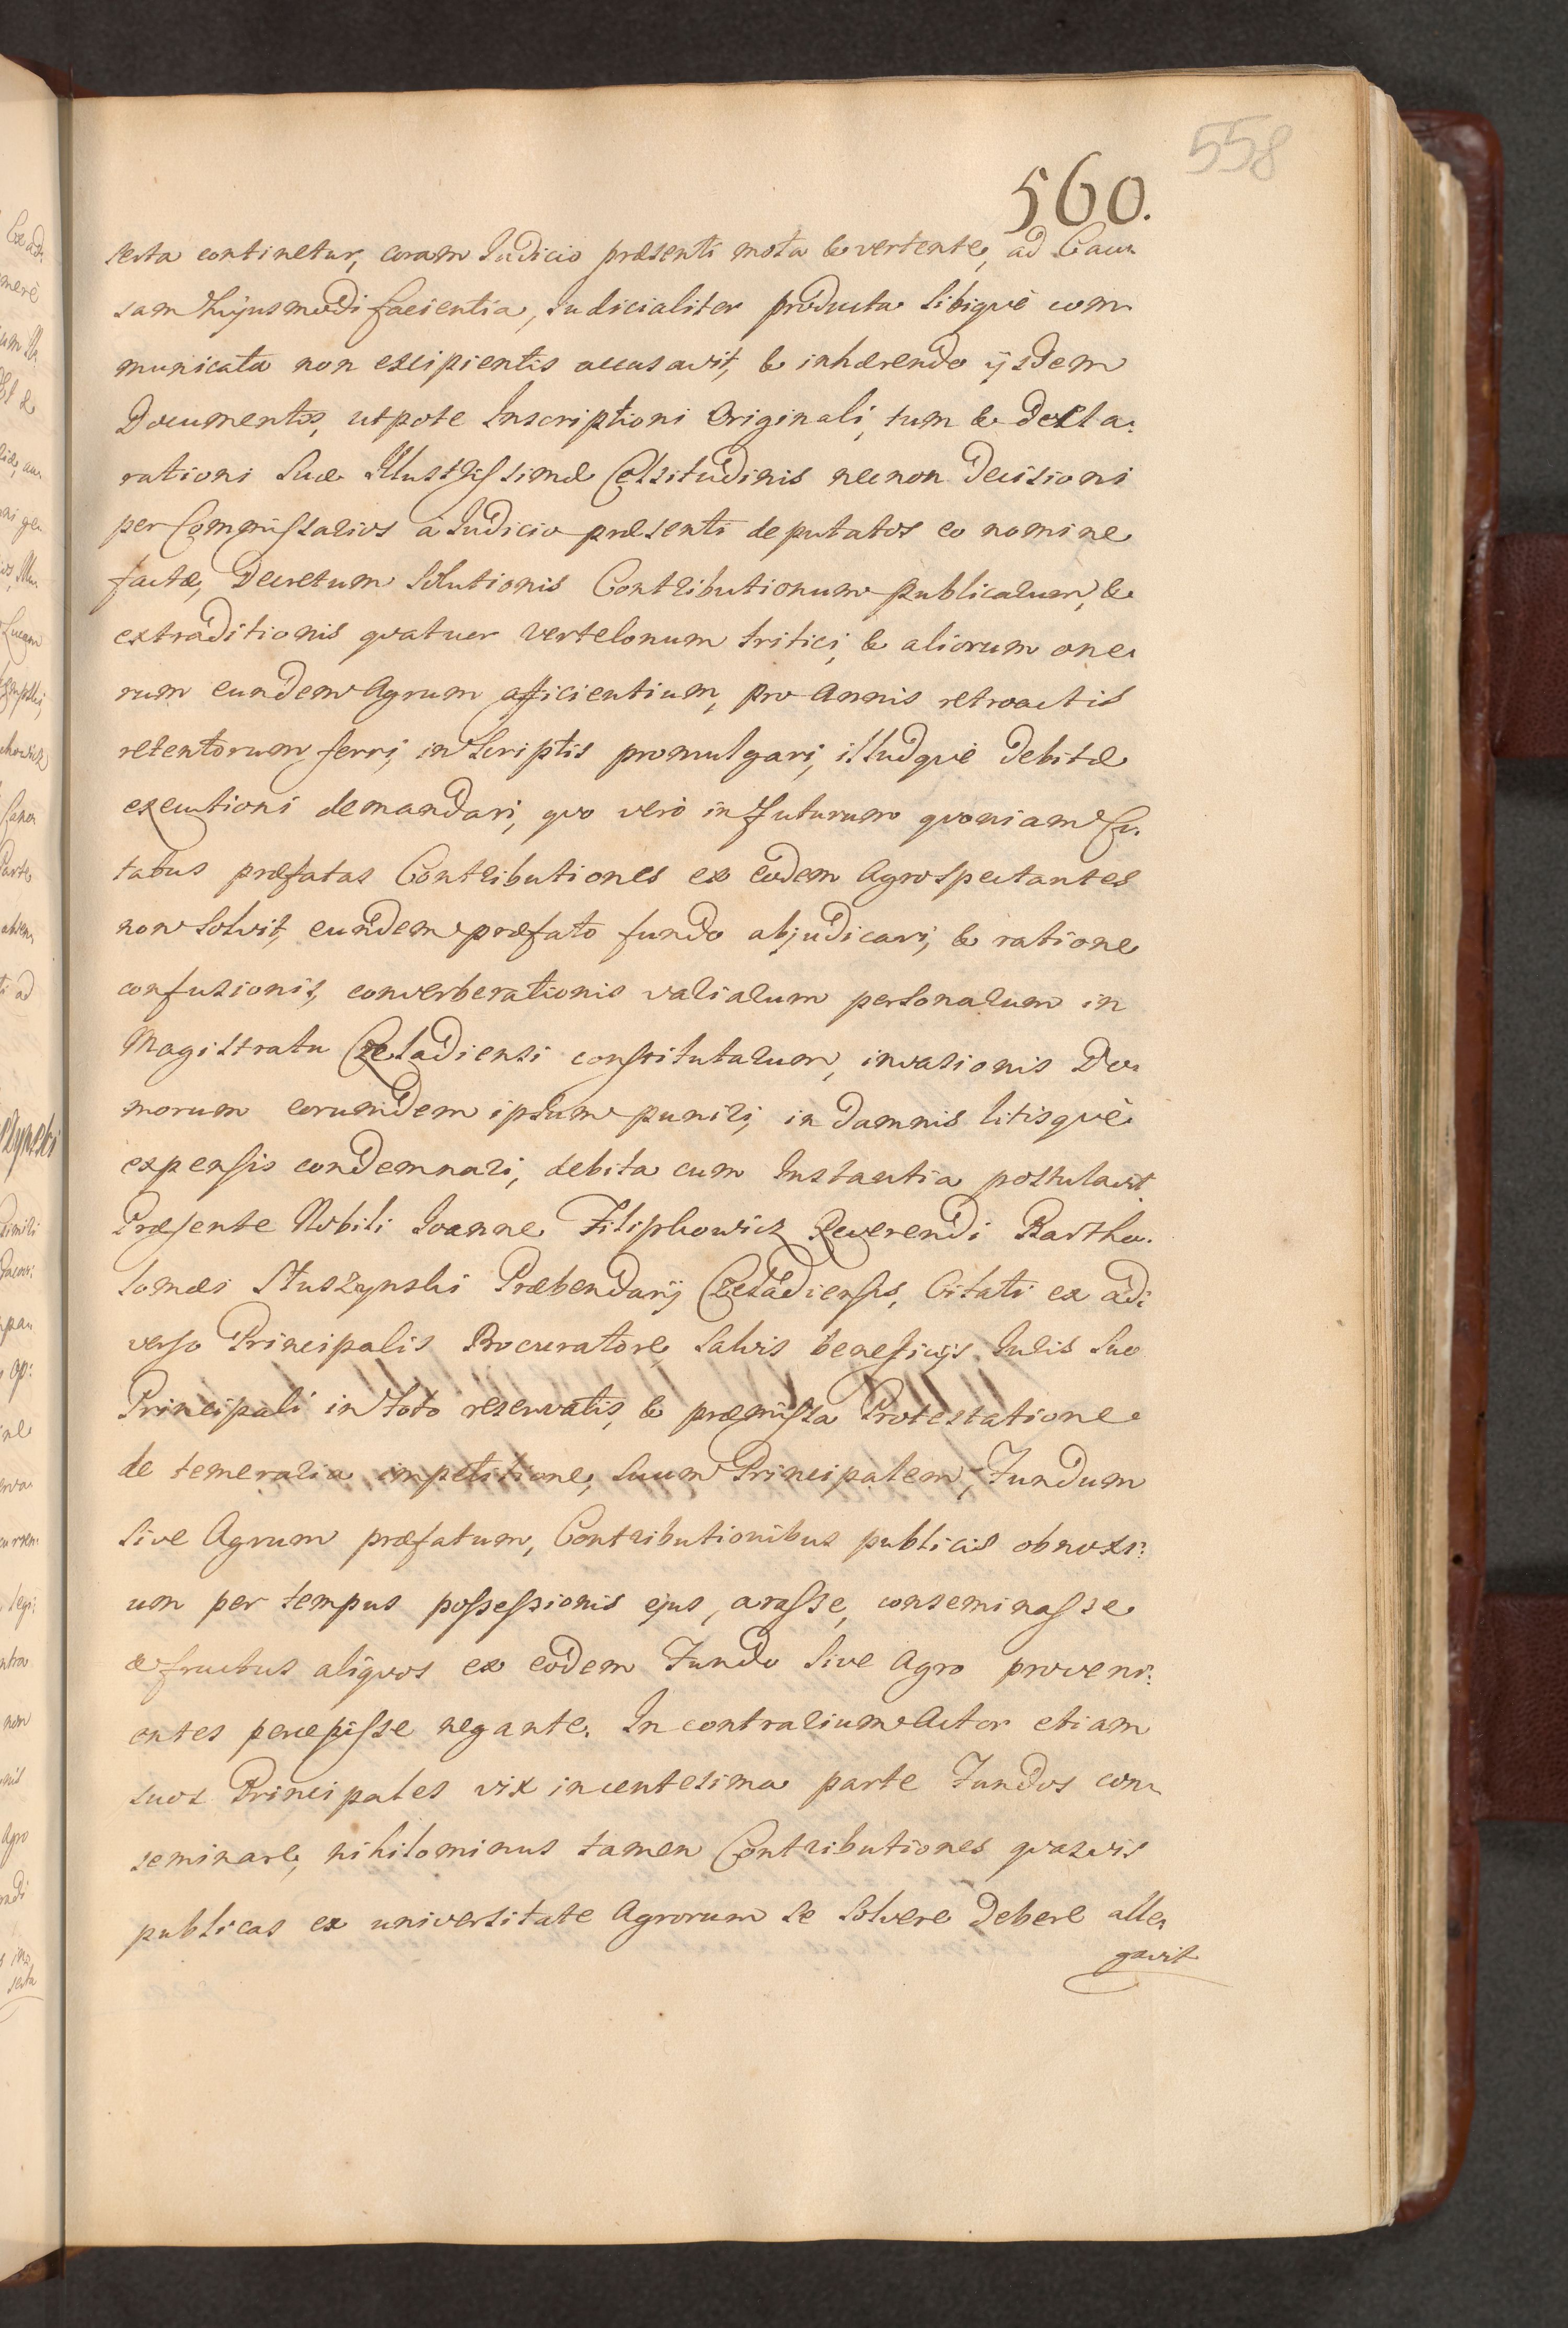 558
560.
serta continetur, coram Judicio præsenti mota & vertente, ad Cau-
sam hujusmodi facientia, Judicialiter producta sibiquè com-
municata non excipientis accusavit, & inhærendo ijsdem
Documentis, utpote Inscriptioni Originali, tum & Decla-
rationi Suæ Illustrissimæ Celsitudinis necnon Decisioni
per Commissarios à Judicio præsenti deputatos eo nomine
factæ, Decretum Solutionis Contributionum publicarum, &
extraditionis quatuor vertelonum tritici, & aliorum one-
rum eundem Agrum afficientium, pro Annis retroactis
retentorum ferri, in Scriptis promulgari, illudquè Debitæ
executioni demandari, quo verò in futurum quoniam Ci-
tatus præfatas Contributiones ex eodem Agro spectantes
non Solvit, eundem præfato fundo abjudicari, & ratione
confusionis, converberationis variarum personarum in
Magistratu Czeladiensi constitutarum, invasionis Do-
morum eorumdem ipsum puniri, in Damnis litisquè
expensis condemnari, debita cum Instantia postulavit
Præsente Nobili Joanne Filipkowicz Reverendi Bartho-
lomæi Stuszynski Præbendarij Czeladiensis, Citati ex ad-
verso Principalis Procuratore, Salvis beneficijs Juris Suo
Principali in toto reservatis, & præmissa Protestatione
de temeraria impetitione, Suum Principalem, Fundum
Sive Agrum præfatum, Contributionibus publicis obnoxi-
um per tempus possessionis ejus, arasse, conseminasse
& fructus aliquos ex eodem Fundo Sive Agro proveni-
entes percepisse negante. In contrarium Actor etiam
suos Principales vix in centesima parte Fundos con-
seminare, nihilominus tamen Contributiones quasvis
publicas ex universitate Agrorum se Solvere Debere alle-
gavit